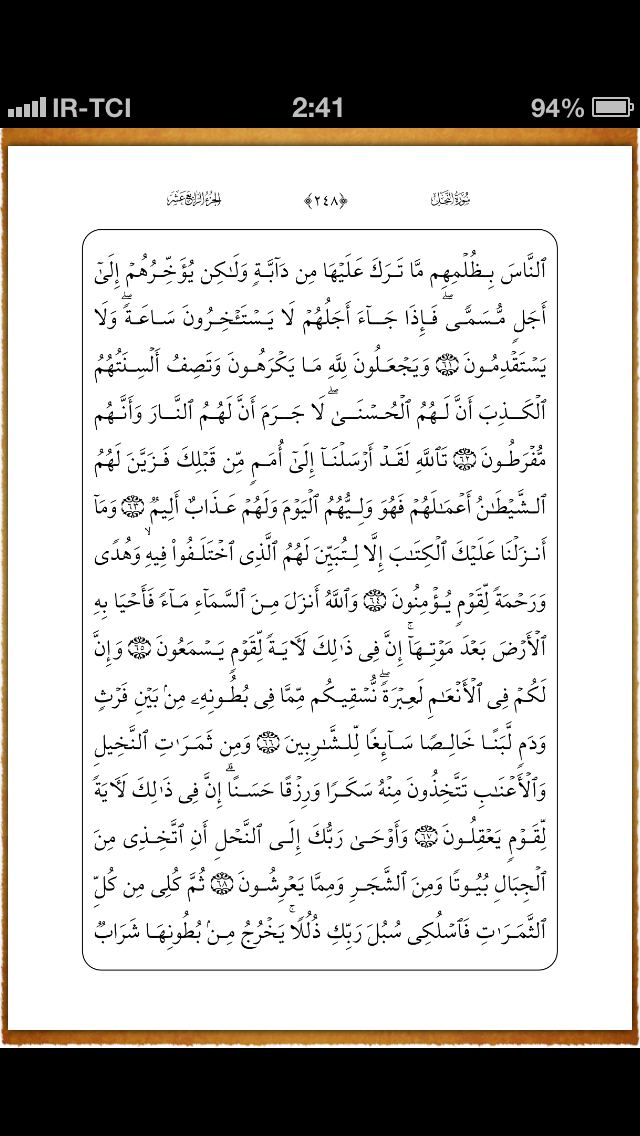 IR-TCI 2:41 94%
سُورَةُ النَّحْل ﴿٢٤٨﴾ الجُزءُ الرَّابِعَ عَشَر
ٱلنَّاسَ بِظُلۡمِهِم مَّا تَرَكَ عَلَيۡهَا مِن دَآبَّةٖ وَلَٰكِن يُؤَخِّرُهُمۡ إِلَىٰٓ
أَجَلٖ مُّسَمّٗىۖ فَإِذَا جَآءَ أَجَلُهُمۡ لَا يَسۡتَـٔۡخِرُونَ سَاعَةٗۖ وَلَا
يَسۡتَقۡدِمُونَ ٦١ وَيَجۡعَلُونَ لِلَّهِ مَا يَكۡرَهُونَ وَتَصِفُ أَلۡسِنَتُهُمُ
ٱلۡكَذِبَ أَنَّ لَهُمُ ٱلۡحُسۡنَىٰۖ لَا جَرَمَ أَنَّ لَهُمُ ٱلنَّارَ وَأَنَّهُم
مُّفۡرَطُونَ ٦٢ تَٱللَّهِ لَقَدۡ أَرۡسَلۡنَآ إِلَىٰٓ أُمَمٖ مِّن قَبۡلِكَ فَزَيَّنَ لَهُمُ
ٱلشَّيۡطَٰنُ أَعۡمَٰلَهُمۡ فَهُوَ وَلِيُّهُمُ ٱلۡيَوۡمَ وَلَهُمۡ عَذَابٌ أَلِيمٞ ٦٣ وَمَآ
أَنزَلۡنَا عَلَيۡكَ ٱلۡكِتَٰبَ إِلَّا لِتُبَيِّنَ لَهُمُ ٱلَّذِي ٱخۡتَلَفُواْ فِيهِۙ وَهُدٗى
وَرَحۡمَةٗ لِّقَوۡمٖ يُؤۡمِنُونَ ٦٤ وَٱللَّهُ أَنزَلَ مِنَ ٱلسَّمَآءِ مَآءٗ فَأَحۡيَا بِهِ
ٱلۡأَرۡضَ بَعۡدَ مَوۡتِهَآۚ إِنَّ فِي ذَٰلِكَ لَأٓيَةٗ لِّقَوۡمٖ يَسۡمَعُونَ ٦٥ وَإِنَّ
لَكُمۡ فِي ٱلۡأَنۡعَٰمِ لَعِبۡرَةٗۖ نُّسۡقِيكُم مِّمَّا فِي بُطُونِهِۦ مِنۢ بَيۡنِ فَرۡثٖ
وَدَمٖ لَّبَنًا خَالِصٗا سَآئِغٗا لِّلشَّٰرِبِينَ ٦٦ وَمِن ثَمَرَٰتِ ٱلنَّخِيلِ
وَٱلۡأَعۡنَٰبِ تَتَّخِذُونَ مِنۡهُ سَكَرٗا وَرِزۡقًا حَسَنًاۚ إِنَّ فِي ذَٰلِكَ لَأٓيَةٗ
لِّقَوۡمٖ يَعۡقِلُونَ ٦٧ وَأَوۡحَىٰ رَبُّكَ إِلَى ٱلنَّحۡلِ أَنِ ٱتَّخِذِي مِنَ
ٱلۡجِبَالِ بُيُوتٗا وَمِنَ ٱلشَّجَرِ وَمِمَّا يَعۡرِشُونَ ٦٨ ثُمَّ كُلِي مِن كُلِّ
ٱلثَّمَرَٰتِ فَٱسۡلُكِي سُبُلَ رَبِّكِ ذُلُلٗاۚ يَخۡرُجُ مِنۢ بُطُونِهَا شَرَابٞ